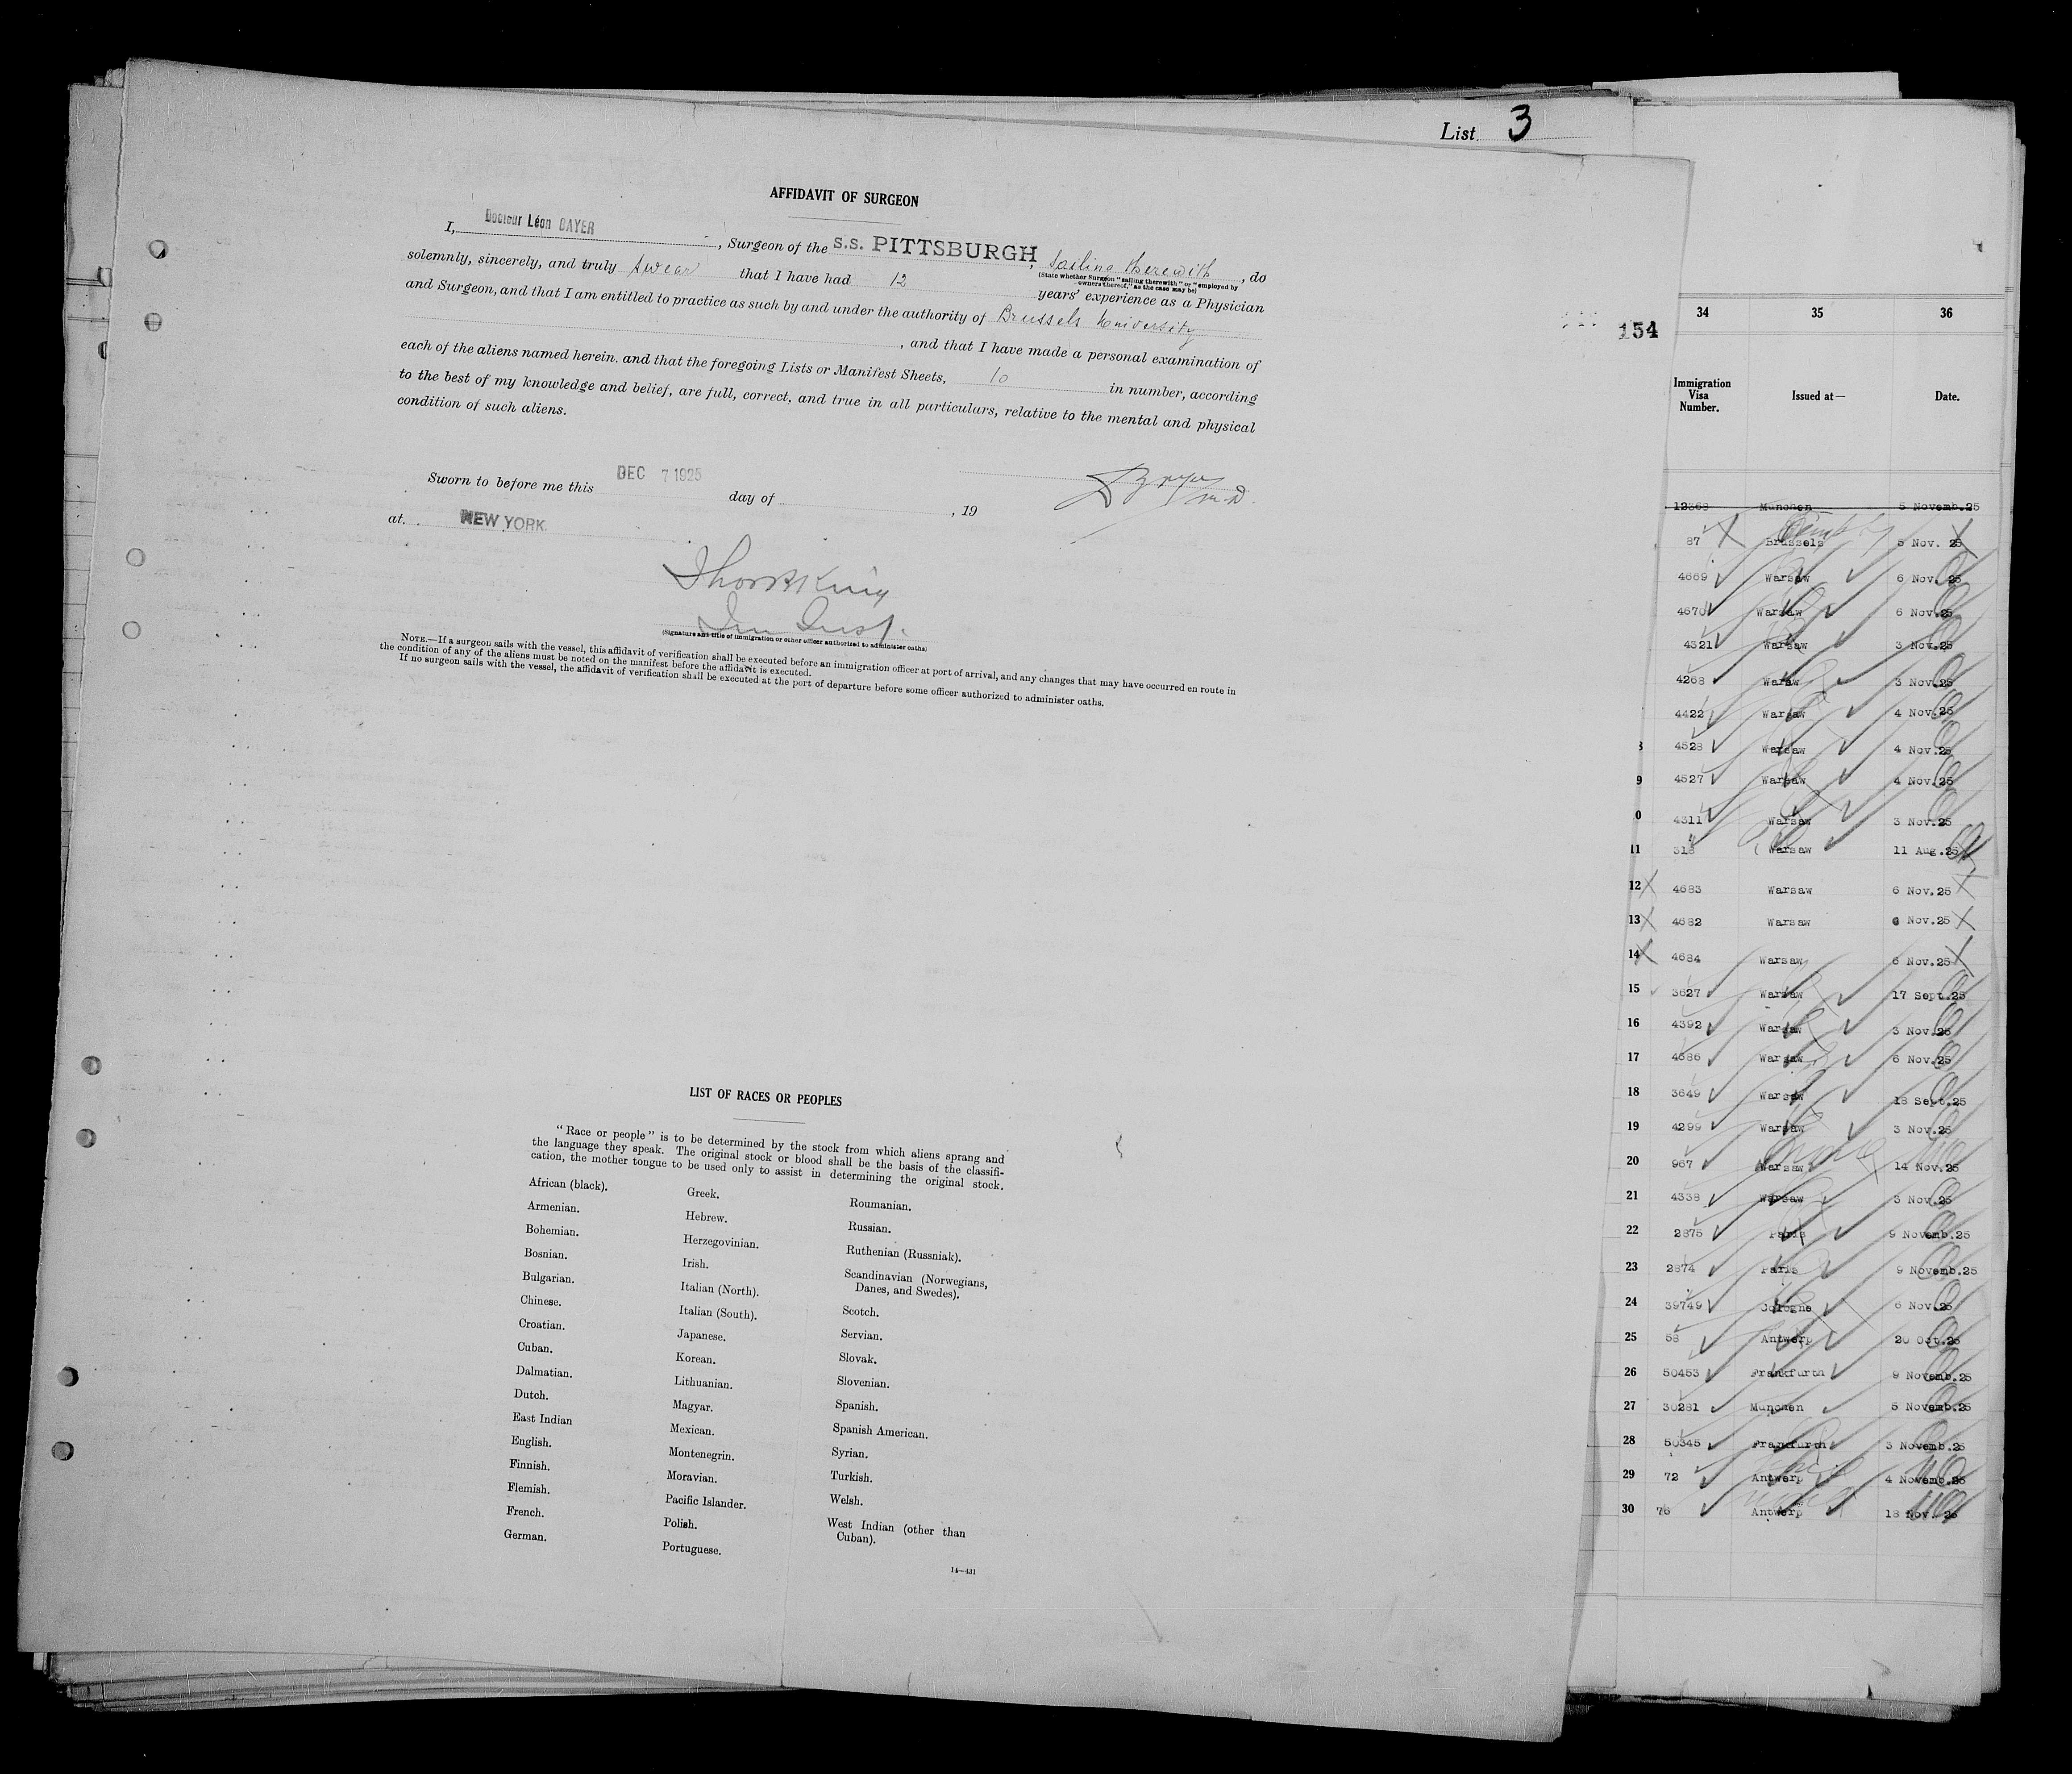 List 3
AFFIDAVIT OF SURGEON
I, Docteur Léon DAYER, Surgeon of the S.S. PITTSBURGH, sailing therewith, do
(State whether Surgeon "sailing therewith" or "employed by
owners thereof," as the case may be)
solemnly, sincerely, and truly swear that I have had 12 years' experience as a Physician
and Surgeon, and that I am entitled to practice as such by and under the authority of Brussels University
, and that I have made a personal examination of
each of the aliens named herein. and that the foregoing Lists or Manifest Sheets, 10 in number, according
to the best of my knowledge and belief, are full, correct, and true in all particulars, relative to the mental and physical
condition of such aliens.
M.D.
Sworn to before me this DEC 7 1925 day of , 19
at NEW YORK.
(Signature and title of immigration or other officer authorized to administer oaths)
NOTE.—If a surgeon sails with the vessel, this affidavit of verification shall be executed before an immigration officer at port of arrival, and any changes that may have occurred en route in
the condition of any of the aliens must be noted on the manifest before the affidavit is executed.
If no surgeon sails with the vessel, the affidavit of verification shall be executed at the port of departure before some officer authorized to administer oaths.
LIST OF RACES OR PEOPLES
"Race or people" is to be determined by the stock from which aliens sprang and
the language they speak. The original stock or blood shall be the basis of the classifi-
cation, the mother tongue to be used only to assist in determining the original stock.
African (black).
Armenian.
Bohemian.
Bosnian.
Bulgarian.
Chinese.
Croatian.
Cuban.
Dalmatian.
Dutch.
East Indian
English.
Finnish.
Flemish.
French.
German.
Greek.
Hebrew.
Herzegovinian.
Irish.
Italian (North).
Italian (South).
Japanese.
Korean.
Lithuanian.
Magyar.
Mexican.
Montenegrin.
Moravian.
Pacific Islander.
Polish.
Portuguese.
Roumanian.
Russian.
Ruthenian (Russniak).
Scandinavian (Norwegians,
Danes, and Swedes).
Scotch.
Servian.
Slovak.
Slovenian.
Spanish.
Spanish American.
Syrian.
Turkish.
Welsh.
West Indian (other than
Cuban).
14—431
154
34 35 36
Immigration
Visa
Number.
Issued at—
Date.
12368 Munchen 5 Novemb.25
87 Brussels 5 Nov. 25
4669 Warsaw 6 Nov. 25
4670 Warsaw 6 Nov.25
4321 Warsaw 3 Nov.25
4268 Warsaw 3 Nov.25
4422 Warsaw 4 Nov.25
4528 Warsaw 4 Nov.25
9 4527 Warsaw 4 Nov.25
0 4311 Warsaw 3 Nov.25
11 318 Warsaw 11 Aug.25
12 4683 Warsaw 6 Nov.25
13 4682 Warsaw 6 Nov.25
14 4684 Warsaw 6 Nov.25
15 3627 Warsaw 17 Sept.25
16 4392 Warsaw 3 Nov.25
17 4686 Warsaw 6 Nov.25
18 3649 Warsaw 18 Sept.25
19 4299 Warsaw 3 Nov.25
20 967 Warsaw 14 Nov.25
21 4338 Warsaw 3 Nov.25
22 2875 Paris 9 Novemb.25
23 2874 Paris 9 Novemb.25
24 39749 Cologne 6 Nov.25
25 58 Antwerp 20 Oct.25
26 50453 Frankfurth 9 Novemb.25
27 30281 Munchen 5 Novemb.25
28 50345 Frankfurth 3 Novemb.25
29 72 Antwerp 4 Novemb.25
30 76 Antwerp 18 Nov. 25